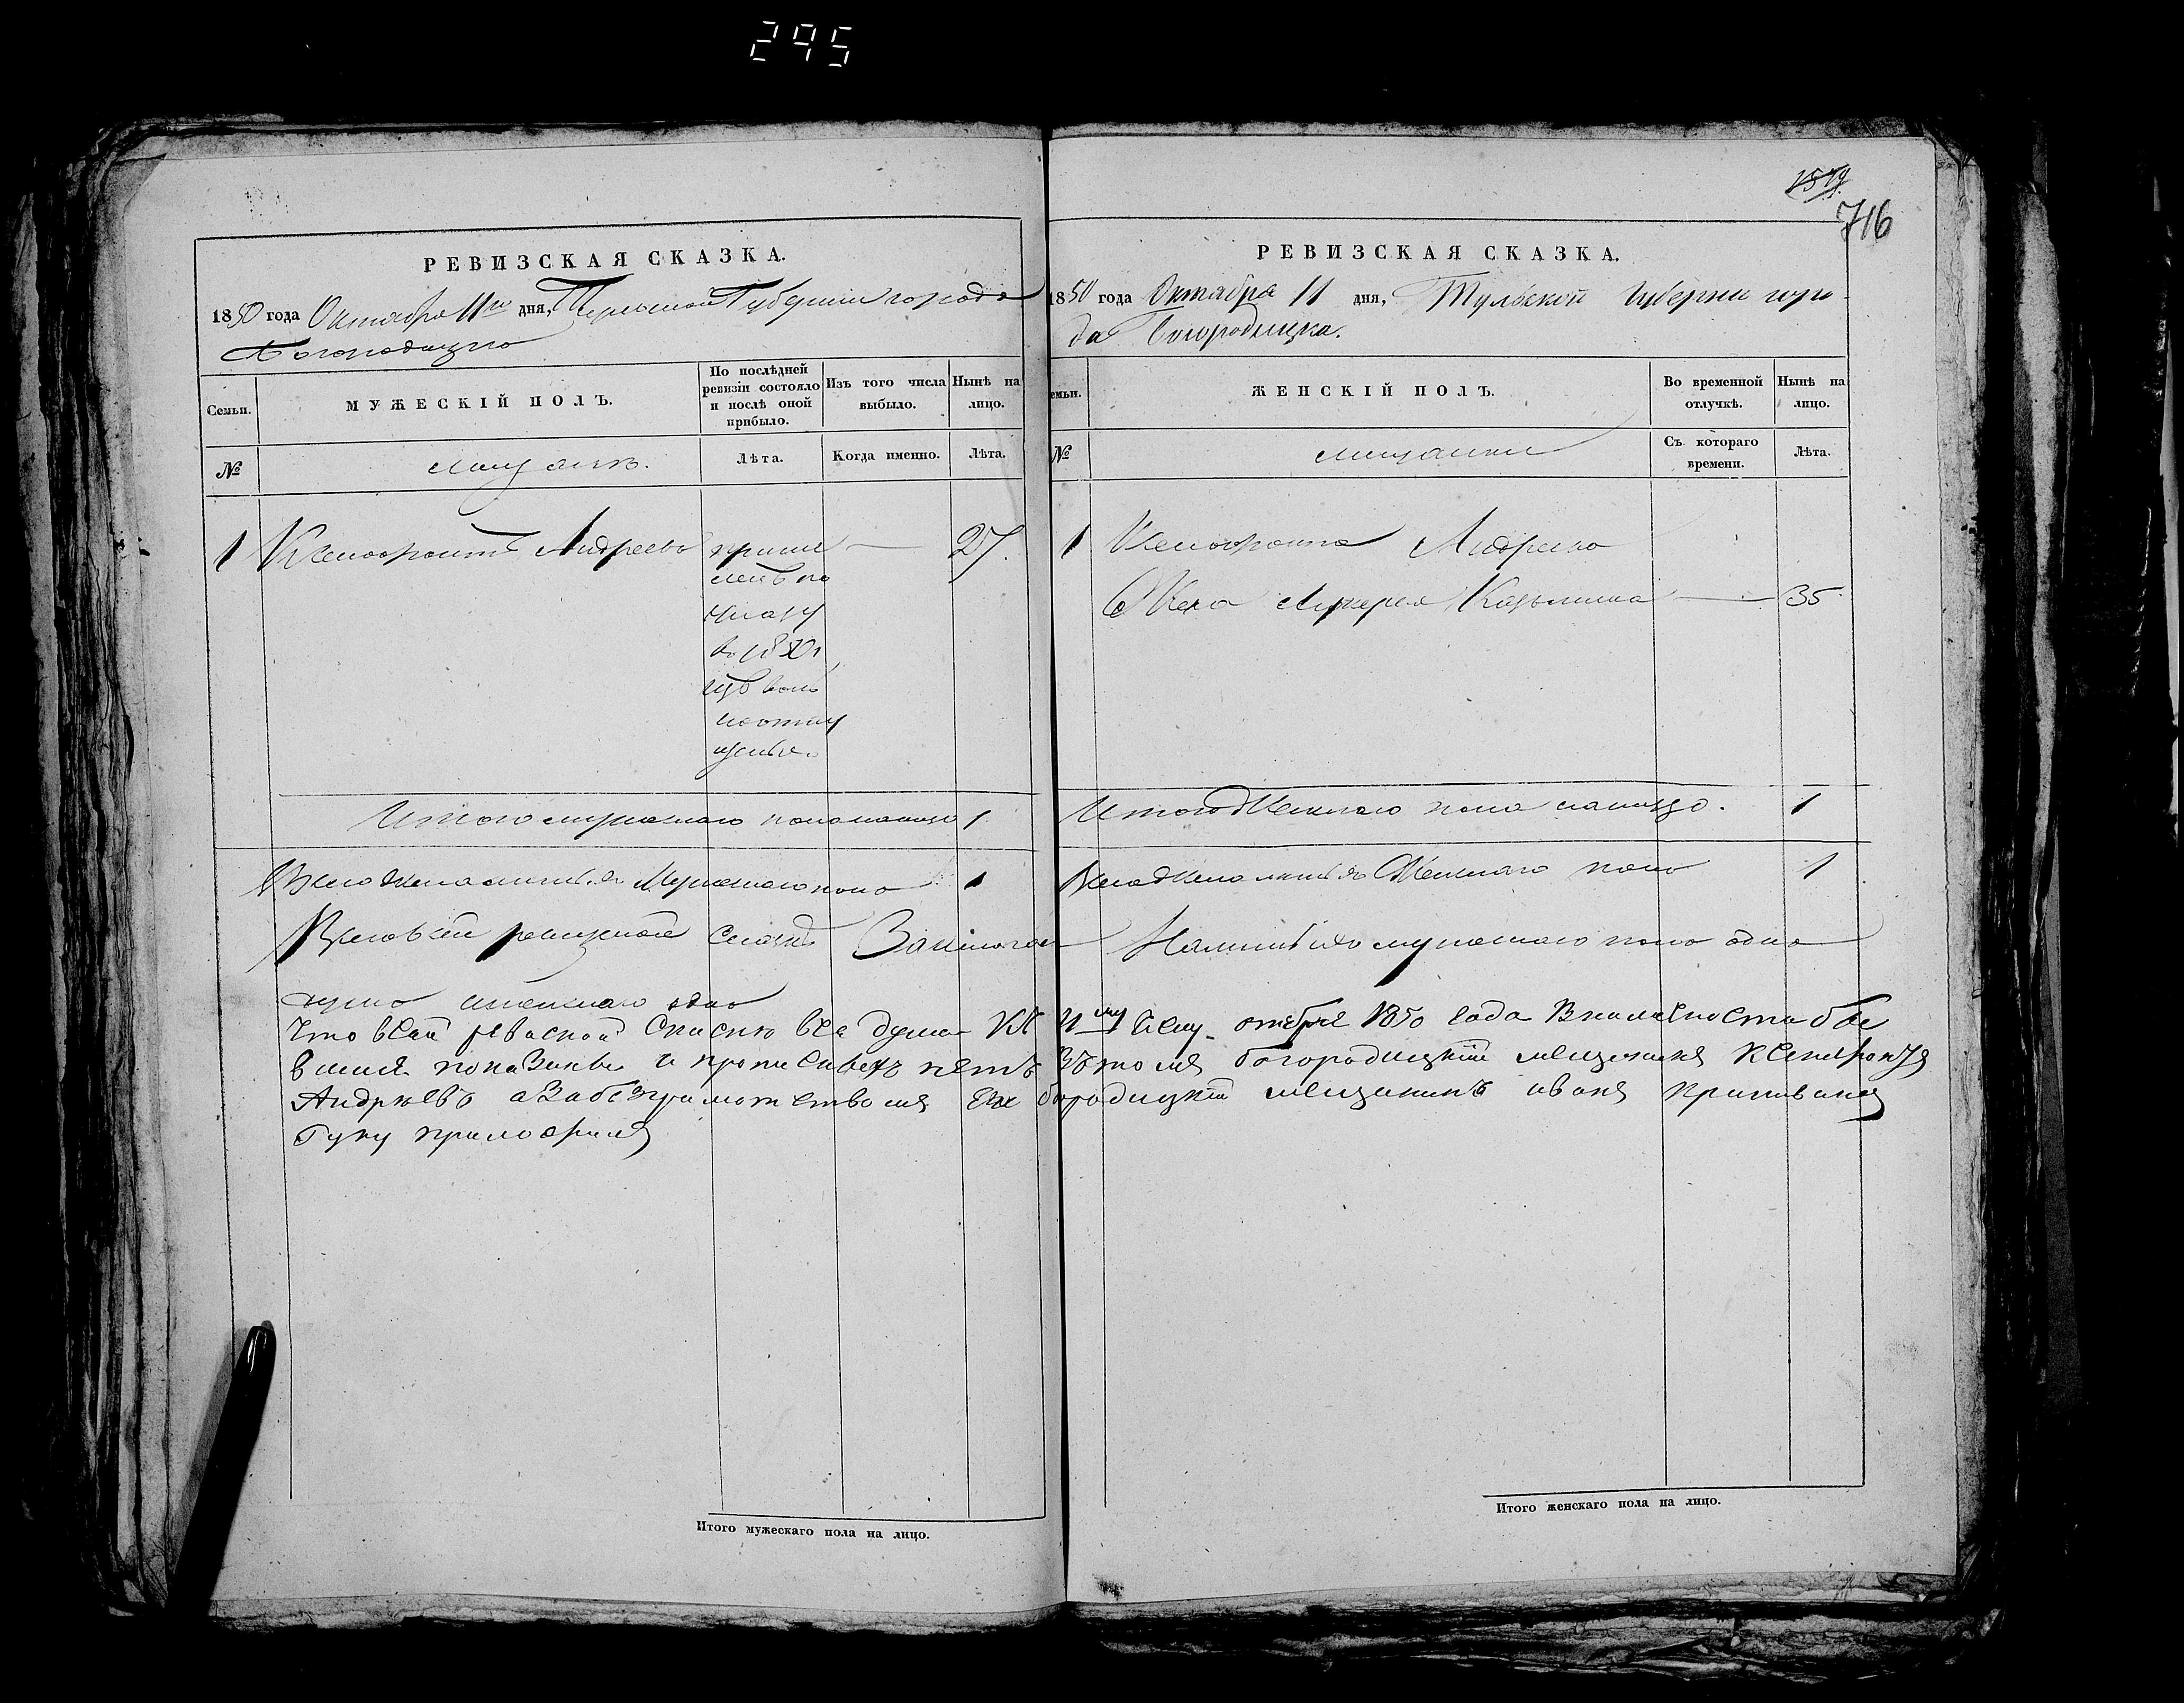 295
1519
716
РЕВИЗСКАЯ СКАЗКА.
1850 года Октября 11го дня, Тульской Губернии города
Богородицка
Семьи.
МУЖЕСКІЙ ПОЛЪ.
По послѣдней ревизіи состояло и послѣ оной прибыло.
Изъ того числа выбыло.
Нынѣ на лицо.
№
мещанъ.
Лѣта.
Когда именно.
Лѣта.
1 Ксенофонтъ Андреевъ
причи
сленъ по
указу
въ 1850 г,
изъ воль
ноотпу
щеныхъ.
27.
Итого мужескаго пола налицо 1
Всего жена мужескаго пола 1
РЕВИЗСКАЯ СКАЗКА.
1850 года Октября 11 дня, Тульской Губерніи горо-
да Богородицка.
Семьи.
ЖЕНСКІЙ ПОЛЪ.
Во временной отлучкѣ.
Нынѣ на лицо.
№
мещанки
Съ котораго времени.
Лѣта.
1 Ксенофонта Андреева
Жена Лукерья Казьмина 35
Итого Женскаго пола налицо. 1
Женскаго пола 1
Въ сей ревизской Сказкѣ мужескаго пола одна
душа женскаго одна
Что всей ревиской все душа КК 11му 1850 года
показаны и прописаныхъ нетъ Втомъ богородицкій мещанинъ Ксенофонтъ
Андрѣевъ Его богородицкій мещанинъ иванъ
руку приложилъ
Итого мужескаго пола на лицо.
Итого женскаго пола на лицо.